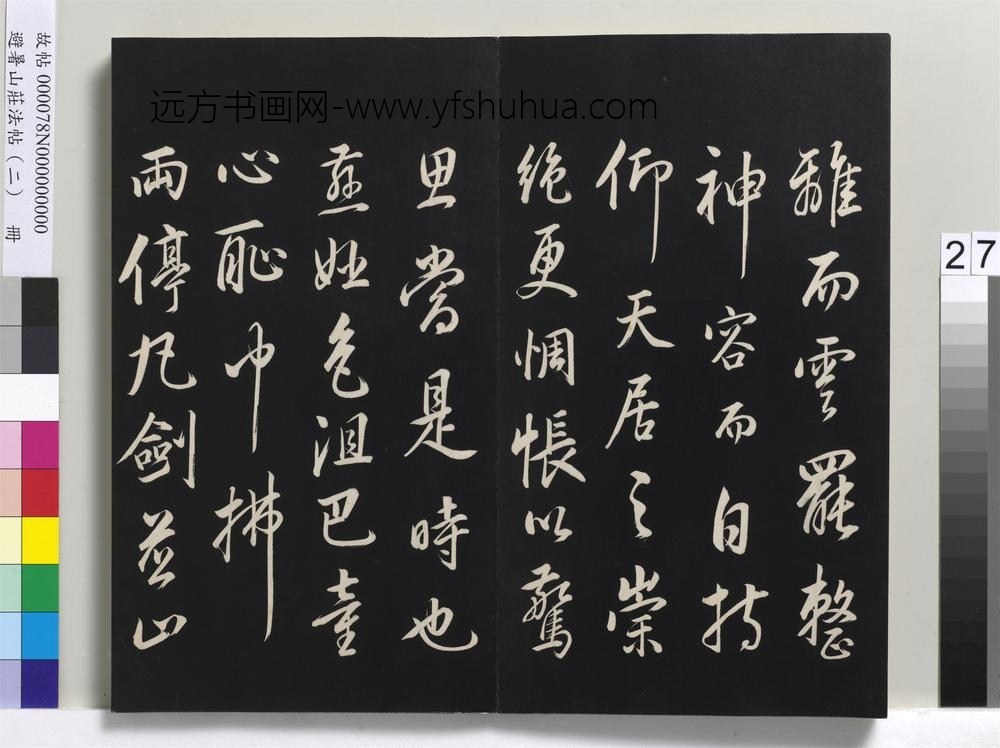 離而雲罷整
神容而自持
仰天居之崇
絶更惆悵以驚
思當是時也
燕姬色沮巴童
心耻巾拂
兩停丸劍並止
远方书画网-www.yfshuhua.com
故帖 000078N000000000
避暑山莊法帖（二） 冊
27